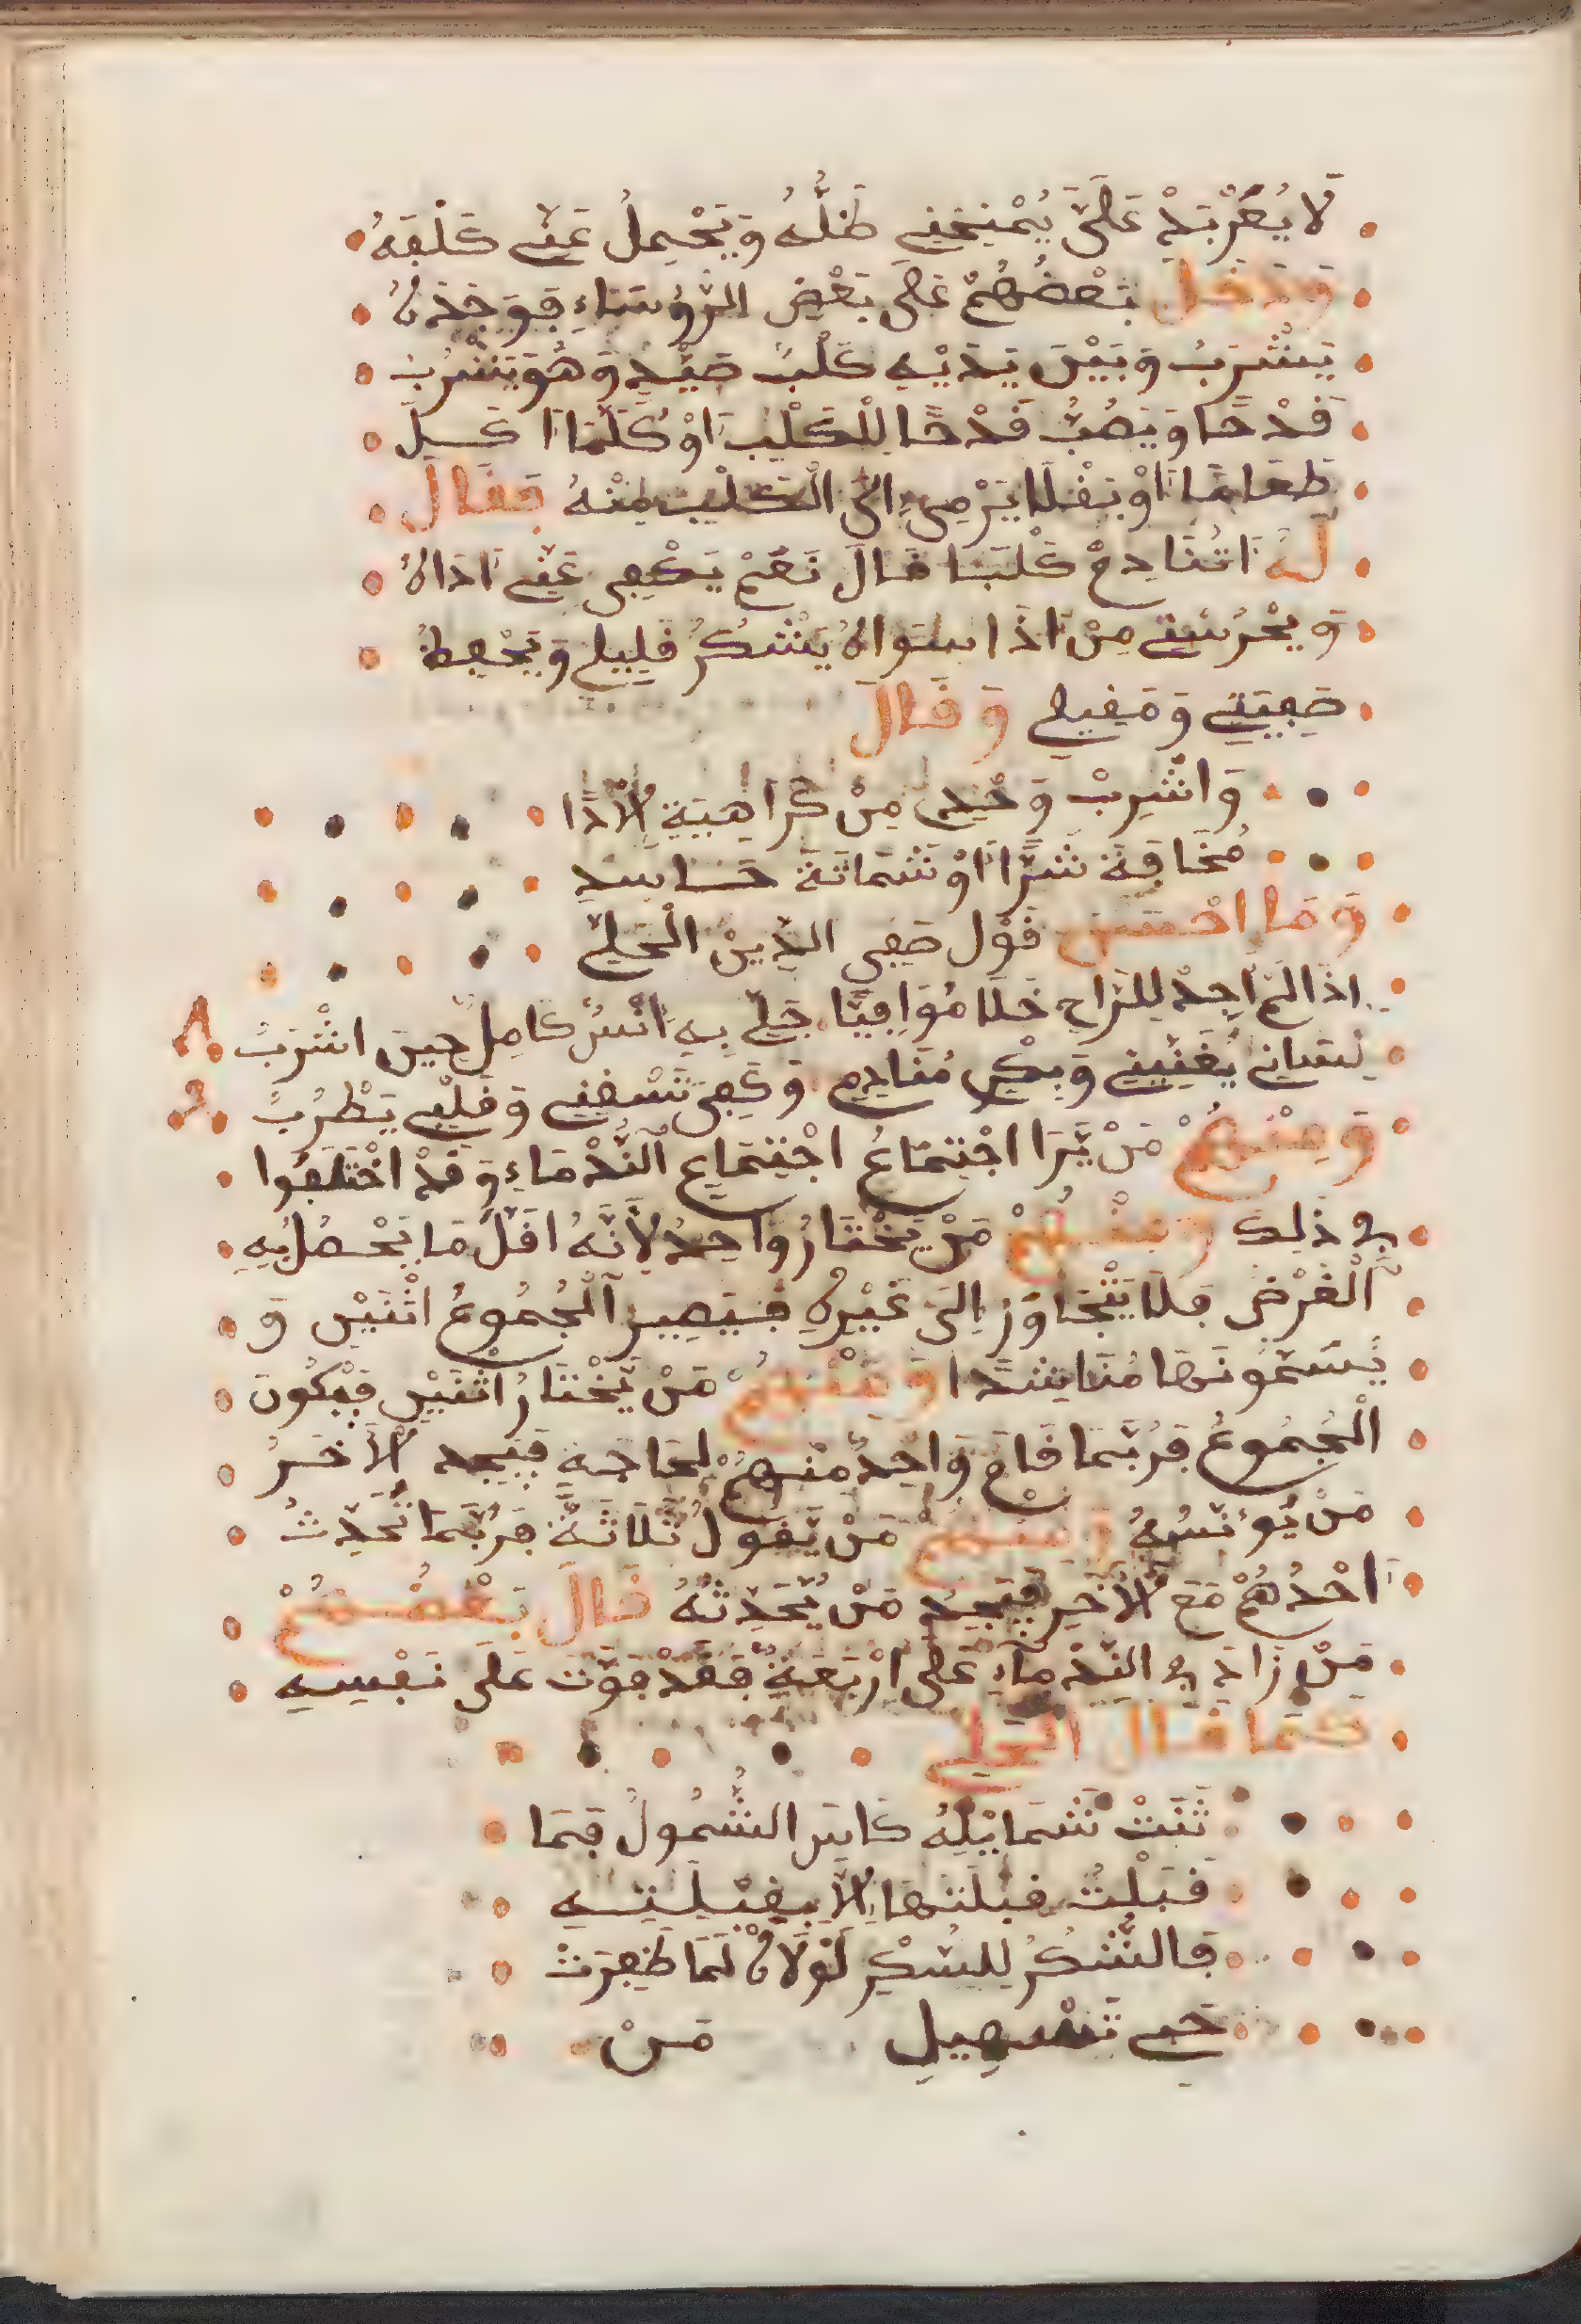 لَا يُعَرْبِدْ عَلَىَّ يُمْنِحُنِي ظِلُّهُ وَيَحْمِلُ عَنِّي كَلْفَهُ
وَدَخَلَ بَعْضُهُمْ عَلَى بَعْضِ الرُّؤَسَاءِ فَوَجَدَهُ
يَشْرَبُ وَبَيْنَ يَدَيْهِ كَلْبُ صَيْدٍ وَهُوَ يَشْرَبُ
قَدْحًا وَيَصُبُّ قَدْحًا لِلْكَلْبِ اَوْ كُلَّمَا اَكَلَ
طَعَامًا اَوْ نَقْلًا يَرْمِي اِلَى الْكَلْبِ مِنْهُ فَقَالَ
لَهُ اَتُنَادِمُ كَلْبًا قَالَ نَعَمْ يَكْفِى عَنِّي اَذَاهُ
وَيَحْرُسُنِي مِنْ اَذَا سِوَاهُ يَشْكُرُ قَلِيلِي وَيَحْفِظُ
ضَيْفِي وَمَقِيلِي وَقَالَ
وَاشْرِبْ وَحْدِي مِنْ كَرَاهِيَةِ الْاَذَا
مُخَافَةَ شَرًّا اَوْ شَمَاتَةَ حَاسِدِ
وَمَا اَحْسَنَ قَوْل صَفِى الدِّينْ الْحَلِيِّ
اِذَا لَمْ اَجِدْ لِلرَّاحِ خَلًّا مُوَافِيًّا فَلِي بِهِ اَنْسُ كَامِلٌ حِينَ اشْرَبُ
لِسَانِي يُغَنِّينِي وَفِكْرِى مُنَادِمِي وَكَفِى تَسْقِنِي وَقَلْبِي يَطْرُبُ
وَمِنْهُمْ مَنْ يَّرَا اجْتِمَاعُ اجْتِمَاعِ النُّدْمَاءِ وَقَدْ اخْتَلَفُوا
فِى ذَلِكَ وَمِنْهُمْ مَنْ يَخْتَارُ وَاحِدُ لِاَنَّهُ اَقَلُّ مَا يَحْصُلُ بِهِ
الْغَرْضُ فَلَا يَتْجَاوَزُ اِلَى غَيْرِهِ فَيَصِير الْجُمُوعُ اثْنَيْنِ وَ
يُسَمُّونَهَا مُنَاشِدًا وَمِنْهُمْ مَنْ يَّخْتَارُ اثْنَيْنِ فَيْكُونَ
الْجُمُوعُ فَرُبَّمَا قَامَ وَاحِدُ مِنْهُمْ لِحَاجَةٍ فَيَجِد الْاَخَرُ
مَنْ يُوءنِسُهُ وَمِنْهُمْ مَنْ يَّقُولُ ثَلَاثَةٌ فَرُبَّمَا تُحَدِّثُ
اَحْدُهُمْ مَعَ الْاَخَرِ فَيَجِدُ مَنْ يُحَدِّثُهُ قَالَ بَعْضُهُمْ
مَنْ زَادَ فِى النُّدْمَآءِ عَلَى اَرْبَعَةٍ فَقَدْ فَوَّتَ عَلَى نَفْسِهِ
كَمَا قَالَ الْحَلِى
ثَنَتْ شَمَايِلِهُ كَاسَ الشُّمُولُ فَمَا
قَبَلْتُ قِبْلَتهَا اِلَّا بِقِبْلَتِهِ
فَالشُّكُرُ لِلسُّكْرِ لَوْلَاهُ لَمَا ظَفِرَتْ
تَسْهِيلِ مَنْ